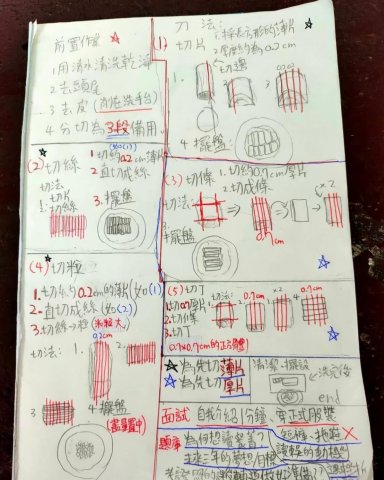 前置作業
1.用清水清洗乾淨
2.去頭尾
3.去皮(削在洗手台)
4.分切為3段備用
(1)
刀法:
切片
1.採長方形的薄片
2.厚度約為0.2cm
1.
切邊
2.
3.
0.2
4.擺盤:
(2)切絲
(如(1))
1.切約0.2cm薄片
2.直切成絲
切法:
1.切片
2.切絲
3.擺盤
(3)切條
1.切約0.7cm厚片
2.切成條
切法:
0.7cm
×2
3.擺盤
(4)切粒
1.切約0.2cm的薄片(如(1))
2.直切成絲(如(2))
3.切絲→粒(米粒大)
切法:
1.
0.2cm
2.
3
4.擺盤
(盡量置中)
(5)切丁
1.切0.7厚片
2.切條
3.切丁
(0.7×0.7cm的正方體)
切法:
0.7cm
×2
0.7cm
為先切薄片
為先切厚片
清潔、擺設
end
面試
自我介紹1分鐘
穿正式服裝
短褲、拖鞋✗
題庫
為何想讀餐善?